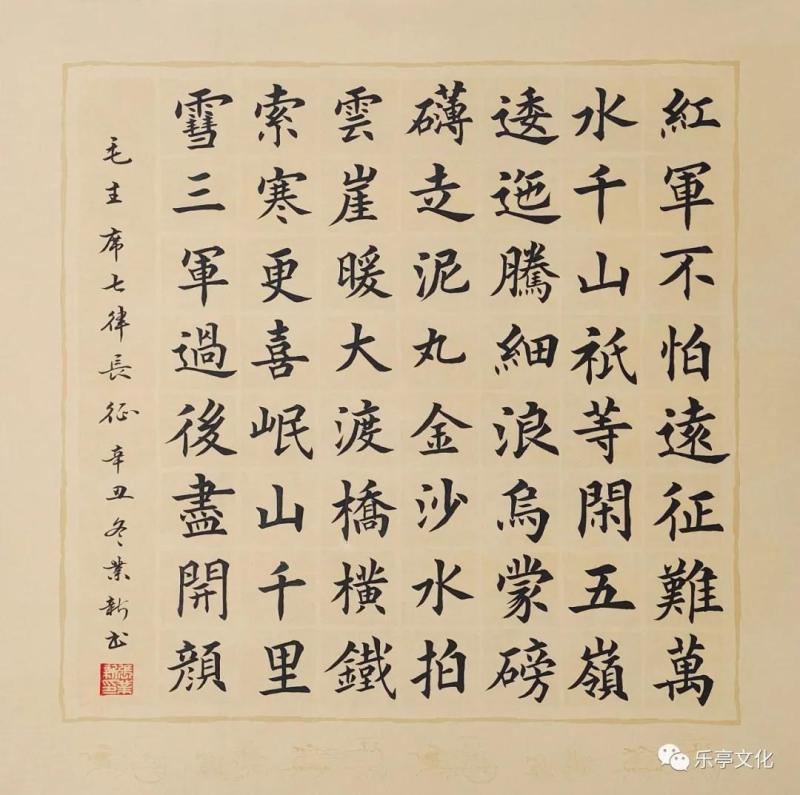 紅軍不怕遠征難萬
水千山祇等閑五嶺
逶迤騰細浪烏蒙磅
礴走泥丸金沙水拍
雲崖暖大渡橋橫鐵
索寒更喜岷山千里
雪三軍過後盡開顔
毛主席七律長征辛丑冬業新书
張業新印
乐亭文化